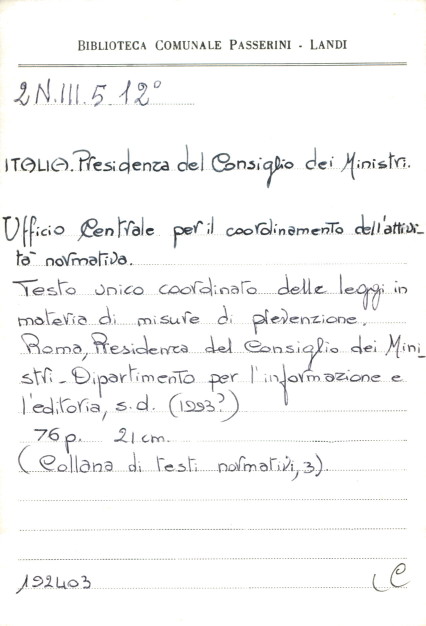 BIBLIOTECA COMUNALE PASSERINI - LANDI
2N.III.5.12°
ITALIA. Presidenza del Consiglio dei Ministri.
Ufficio Centrale per il coordinamento dell'attivi-
tà normativa.
Testo unico coordinato delle leggi in
materia di misure di prevenzione.
Roma, Presidenza del Consiglio dei Mini-
stri - Dipartimento per l'informazione e
l'editoria, s.d. (1993?)
76 p. 21 cm.
(Collana di testi normativi, 3).
192403